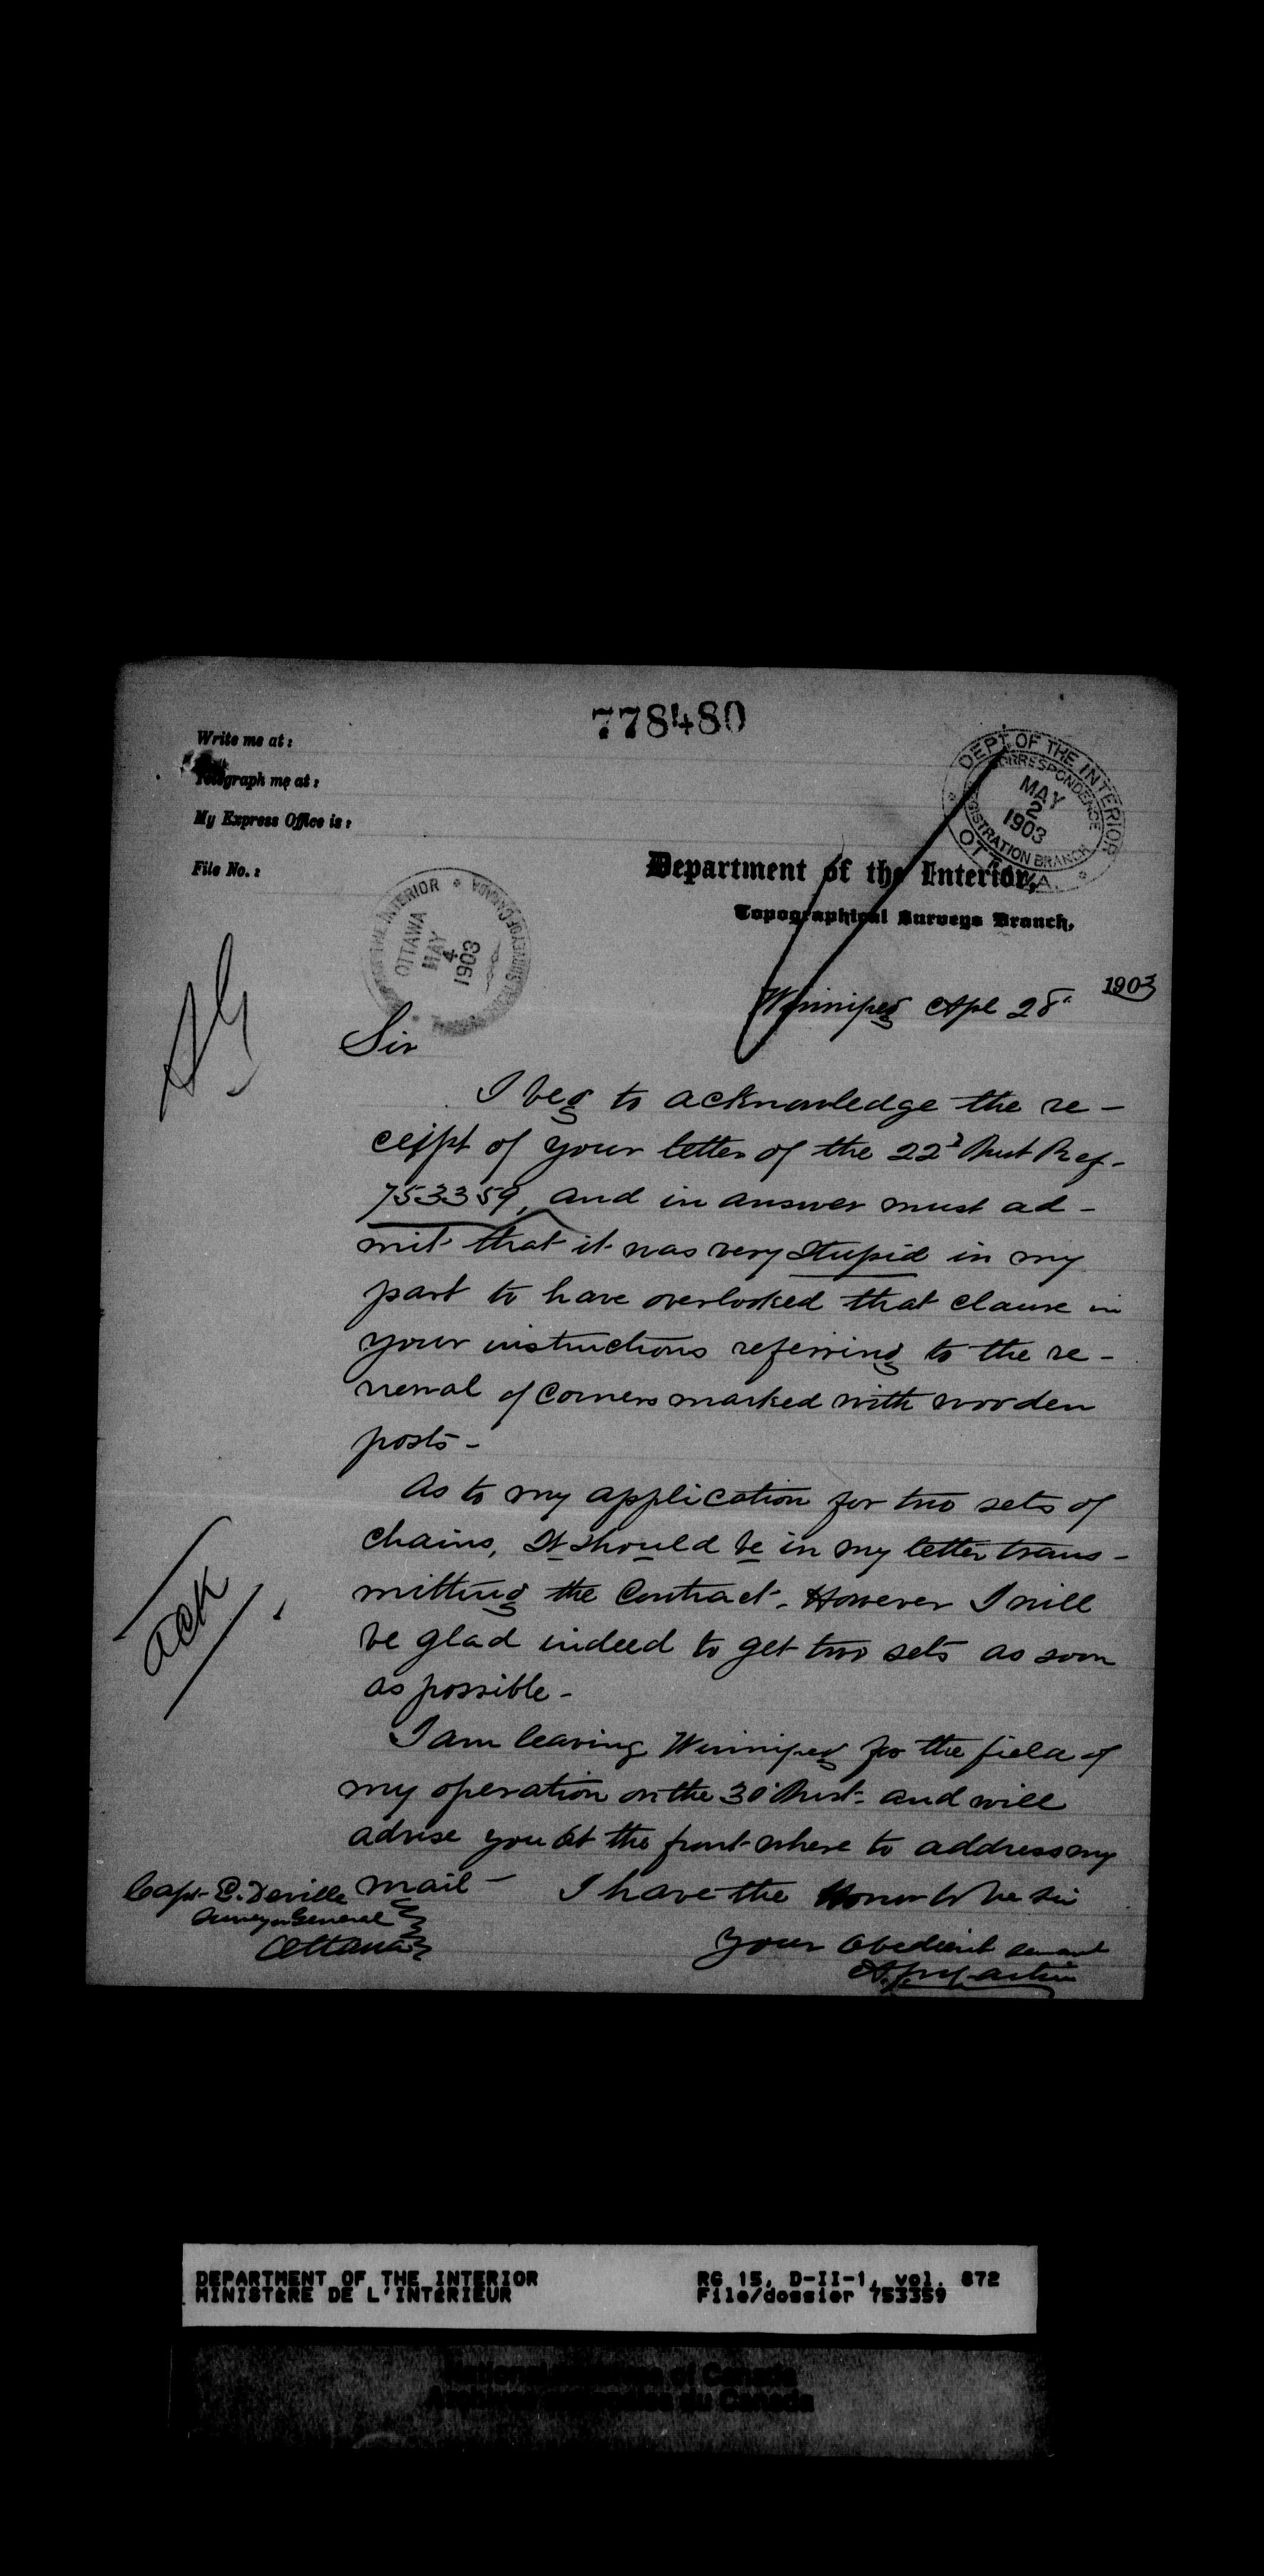 778480
Write me at:
Telegraph me at:
My Express Office is:
File No.:
DEPT. OF THE INTERIOR
CORRESPONDENCE
REGISTRATION BRANCH
MAY
2
1903
OTTAWA.
Department of the Interior,
Topographical Surveys Branch,
THE INTERIOR
OTTAWA
MAY
4
1903
Winnipeg Apl 28 1903
Sir
I beg to acknowledge the re-
ceipt of your letter of the 22d Inst Ref-
753359, and in answer must ad-
mit that it was very stupid in my
part to have overlooked that clause in
your instructions referring to the re-
newal of corners marked with wooden
posts-
As to my application for two sets of
chains, It should be in my letter trans-
mitting the Contract. However I will
be glad indeed to get two sets as soon
as possible-
I am leaving Winnipeg for the field of
my operation on the 30 Inst. and will
advise you at the front where to address my
mail - I have the Honor to be Sir
Your obedient servant
Capt E. Deville
Surveyor General
Ottawa
Ack
DEPARTMENT OF THE INTERIOR
MINISTERE DE L'INTERIEUR
RG 15, D-II-1, vol. 872
File/dossier 753359
National Archives of Canada
Archives nationales du Canada